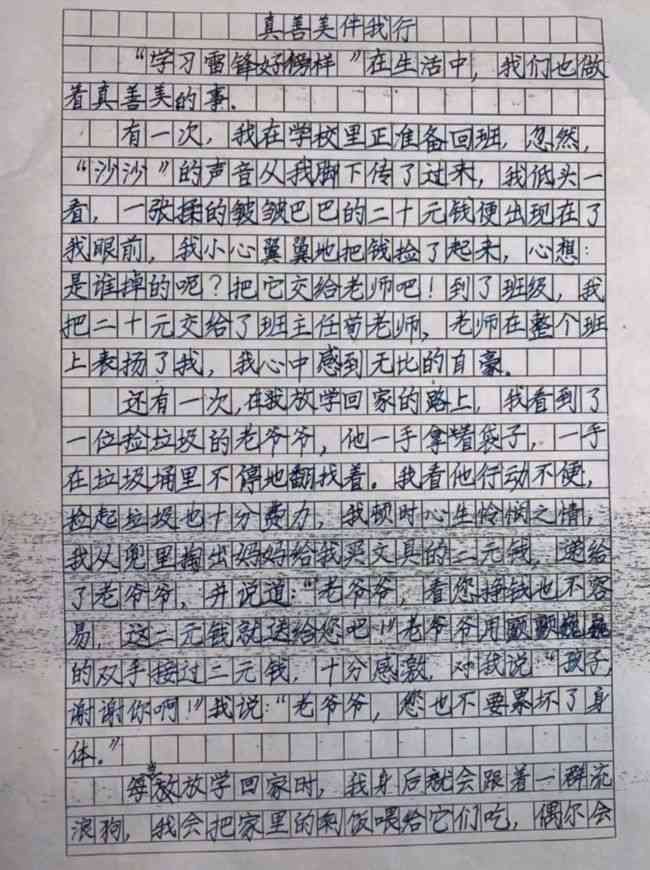 真善美伴我行
“学习雷锋好榜样”在生活中，我们也做
着真善美的事.
有一次，我在学校里正准备回班，忽然，
“沙沙”的声音从我脚下传了过来，我低头一
看，一张揉的皱皱巴巴的二十元钱便出现在了
我眼前，我小心翼翼地把钱捡了起来，心想：
是谁掉的呢？把它交给老师吧！到了班级，我
把二十元交给了班主任苟老师，老师在整个班
上表扬了我，我心中感到无比的自豪。
还有一次，在我放学回家的路上，我看到了
一位捡垃圾的老爷爷，他一手拿着袋子，一手
在垃圾桶里不停地翻找着。我看他行动不便，
捡起垃圾也十分费力，我顿时心生怜悯之情，
我从兜里掏出妈妈给我买文具的二元钱，递给
了老爷爷，并说道：“老爷爷，看您挣钱也不容
易，这二元钱就送给您吧！”老爷爷用颤颤巍巍
的双手接过二元钱，十分感激，对我说“孩子，
谢谢你啊！”我说：“老爷爷，您也不要累坏了身
体。”
每放学回家时，我身后就会跟着一群流
浪狗，我会把家里的剩饭喂给它们吃，偶尔会